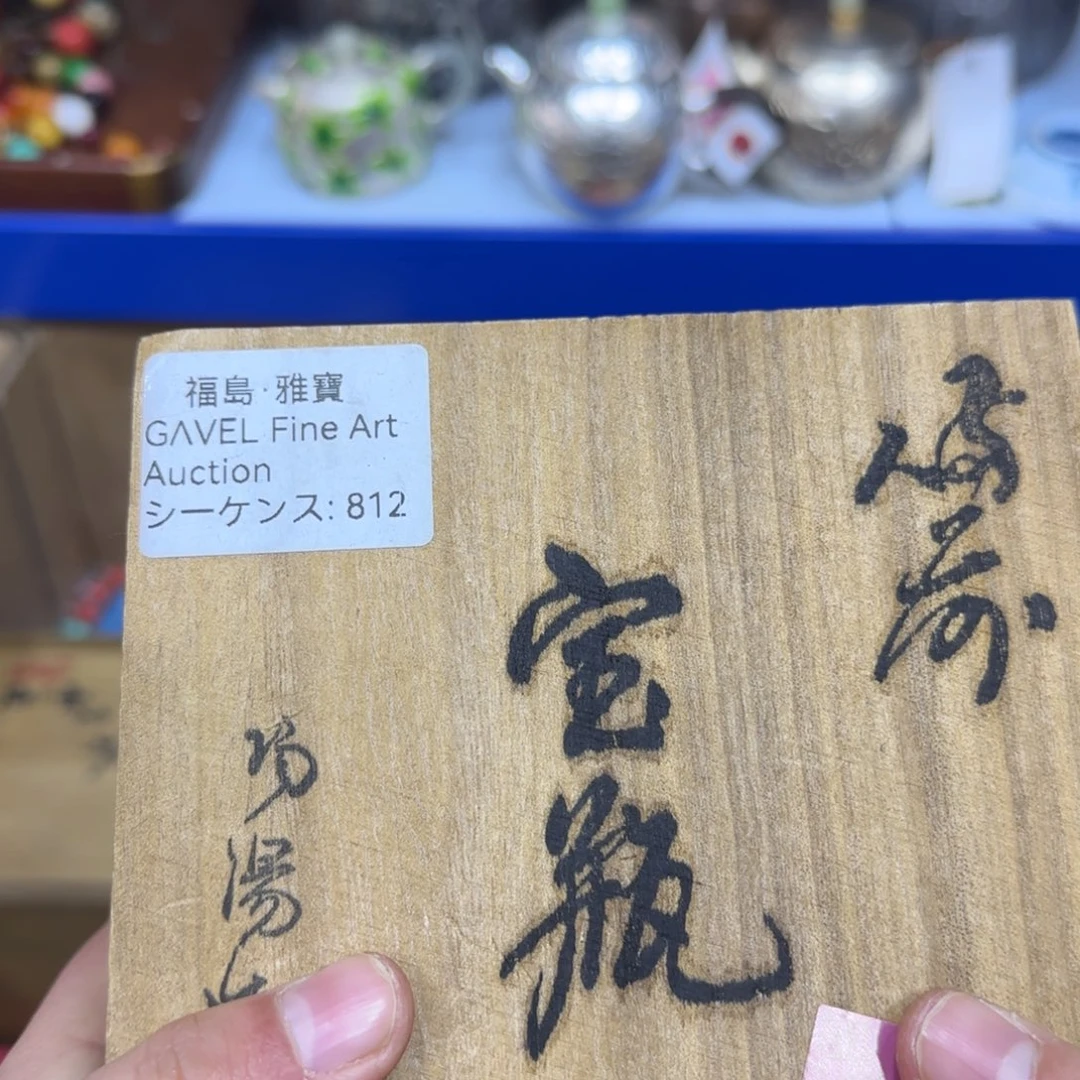 福島·雅寶
GAVEL Fine Art
Auction
シーケンス: 812
備前
宝瓶